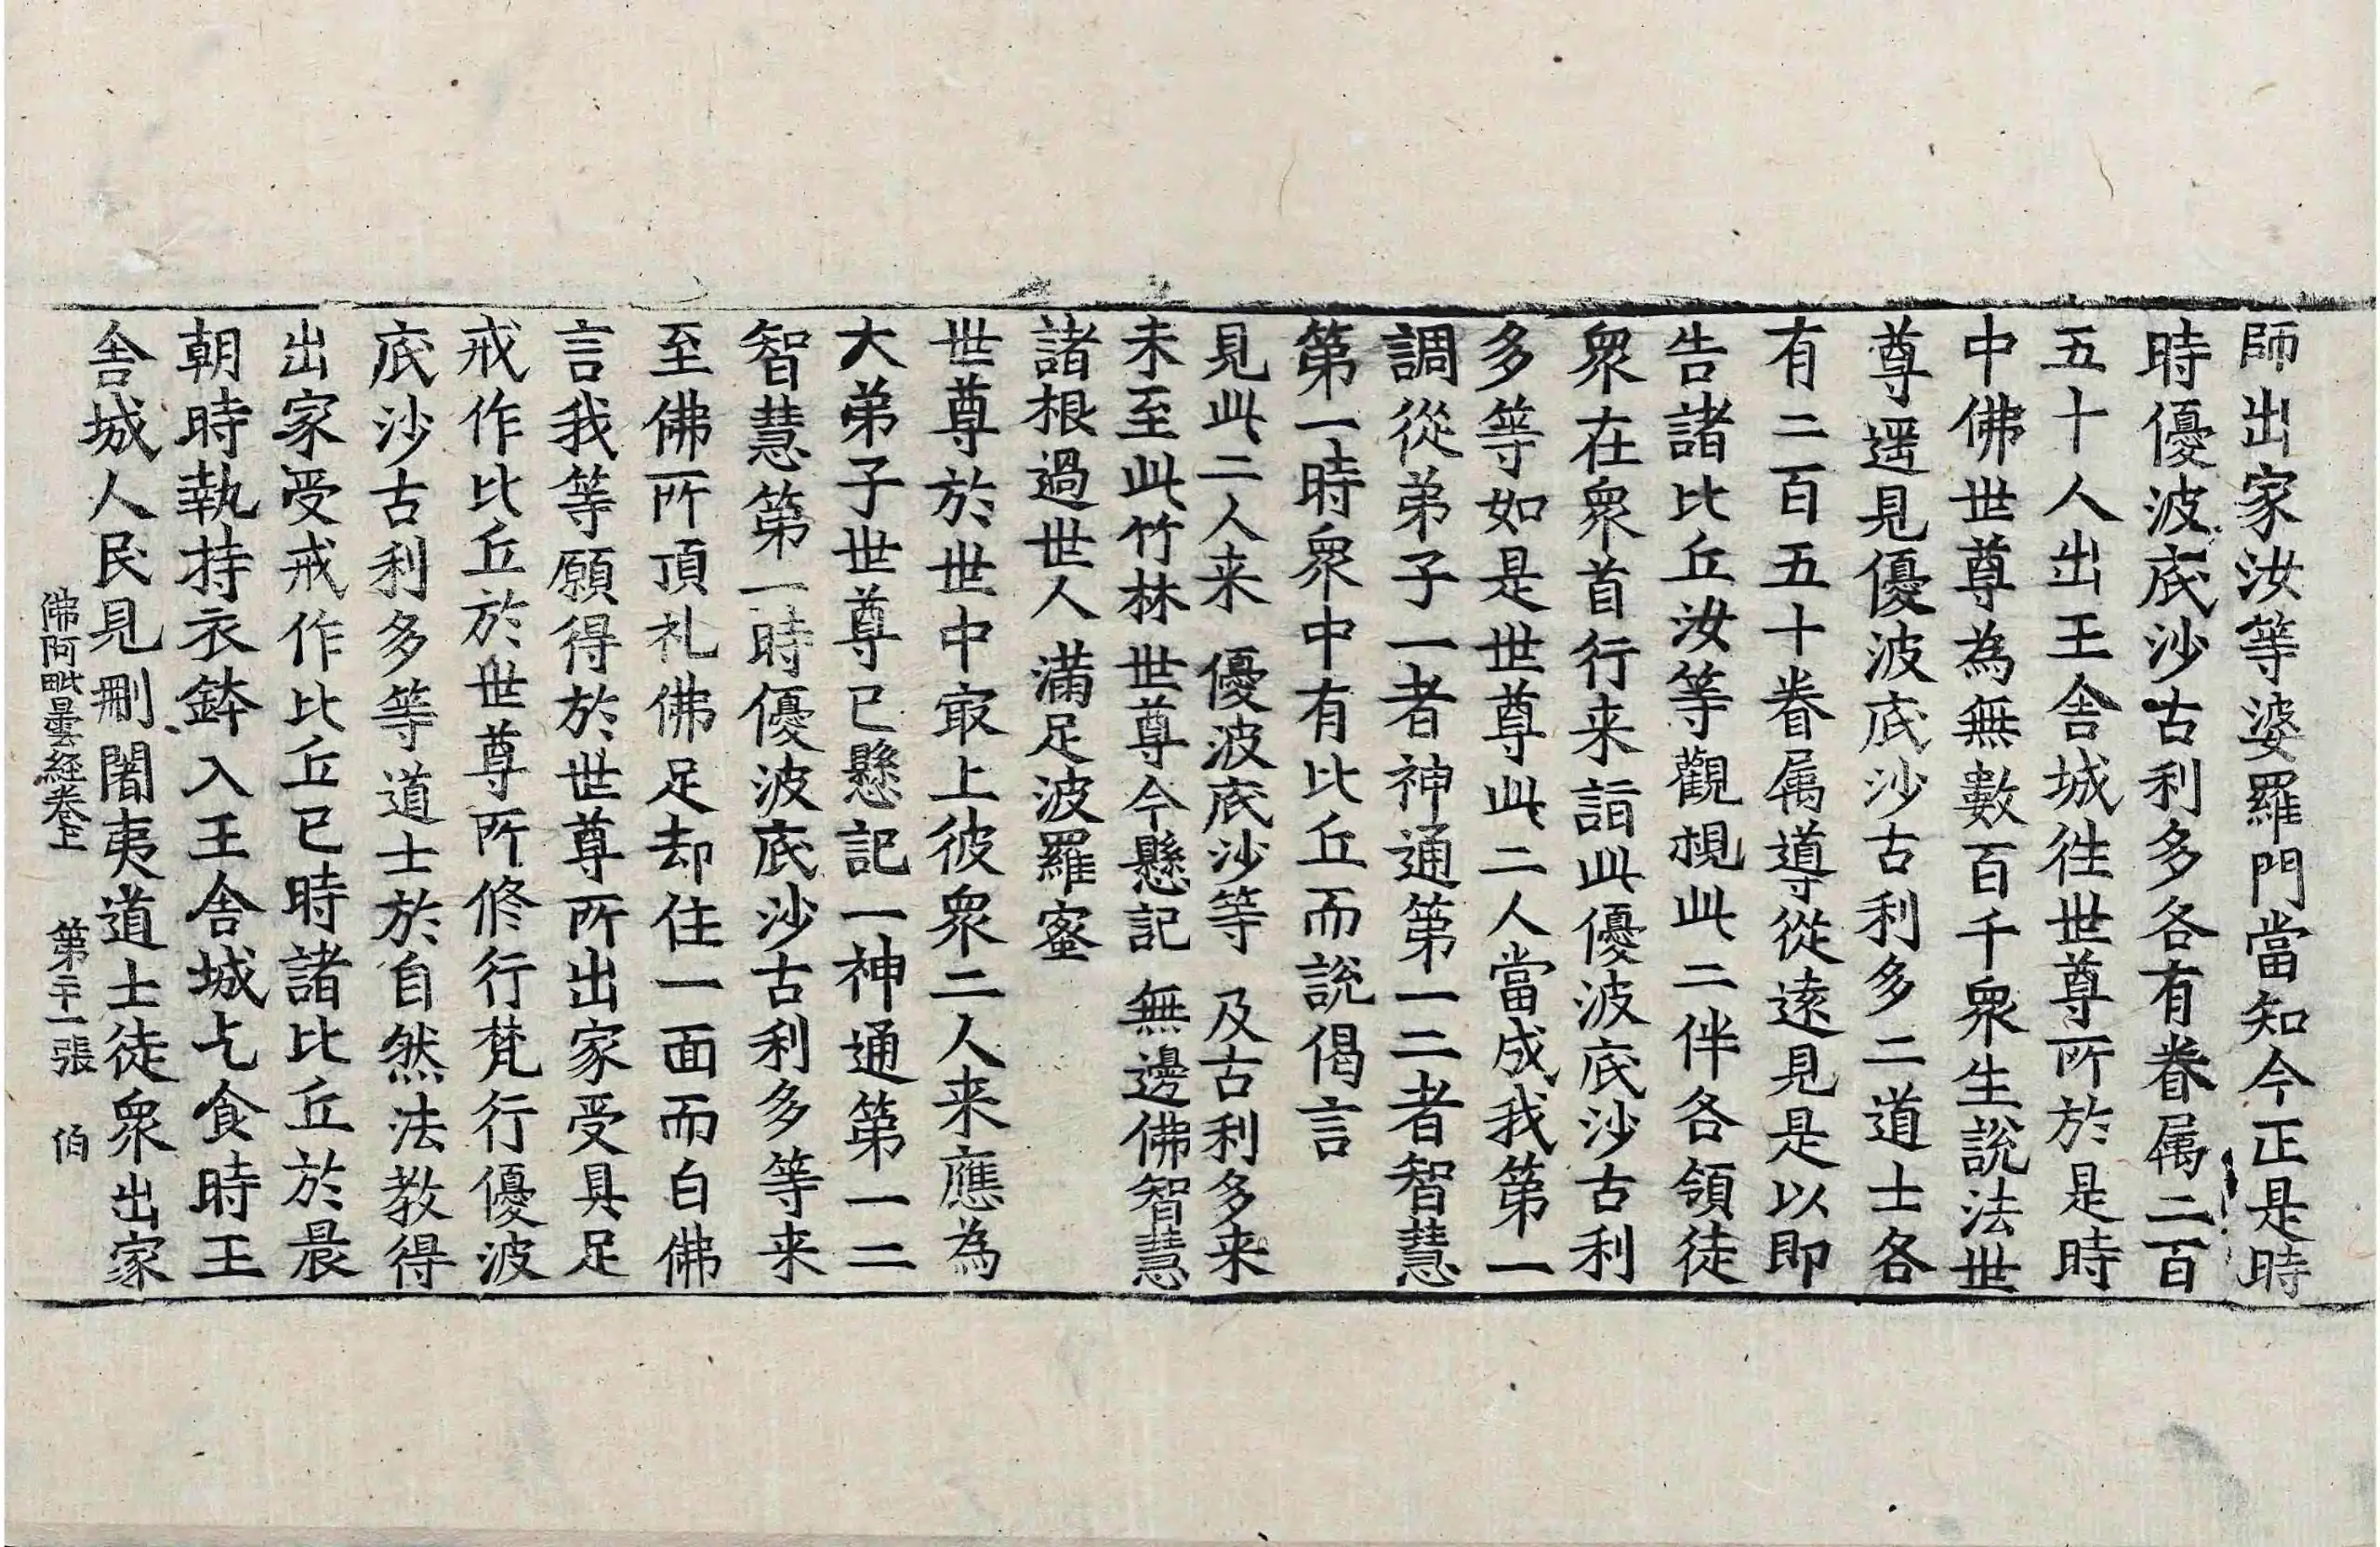 師出家汝等婆羅門當知今正是時
時優波底沙古利多各有眷属二百
五十人出王舍城徃世尊所於是時
中佛世尊為無數百千衆生說法世
尊遥見優波底沙古利多二道士各
有二百五十眷属導從遠見是以即
告諸比丘汝等觀視此二伴各領徒
衆在衆首行来詣此優波底沙古利
多等如是世尊此二人當成我第一
調從弟子一者神通第一二者智慧
第一時衆中有比丘而說偈言
見此二人来 優波底沙等 及古利多来
未至此竹林 世尊今懸記 無邊佛智慧
諸根過世人 滿足波羅蜜
世尊於世中㝡上彼衆二人来應為
大弟子世尊已懸記一神通第一二
智慧第一時優波底沙古利多等来
至佛所頂礼佛足却住一面而白佛
言我等願得於世尊所出家受具足
戒作比丘於世尊所修行梵行優波
底沙古利多等道士於自然法教得
出家受戒作比丘已時諸比丘於晨
朝時執持衣鉢入王舍城乞食時王
舍城人民見刪闍夷道士徒衆出家
佛阿毗曇経卷上 第二十一張 伯